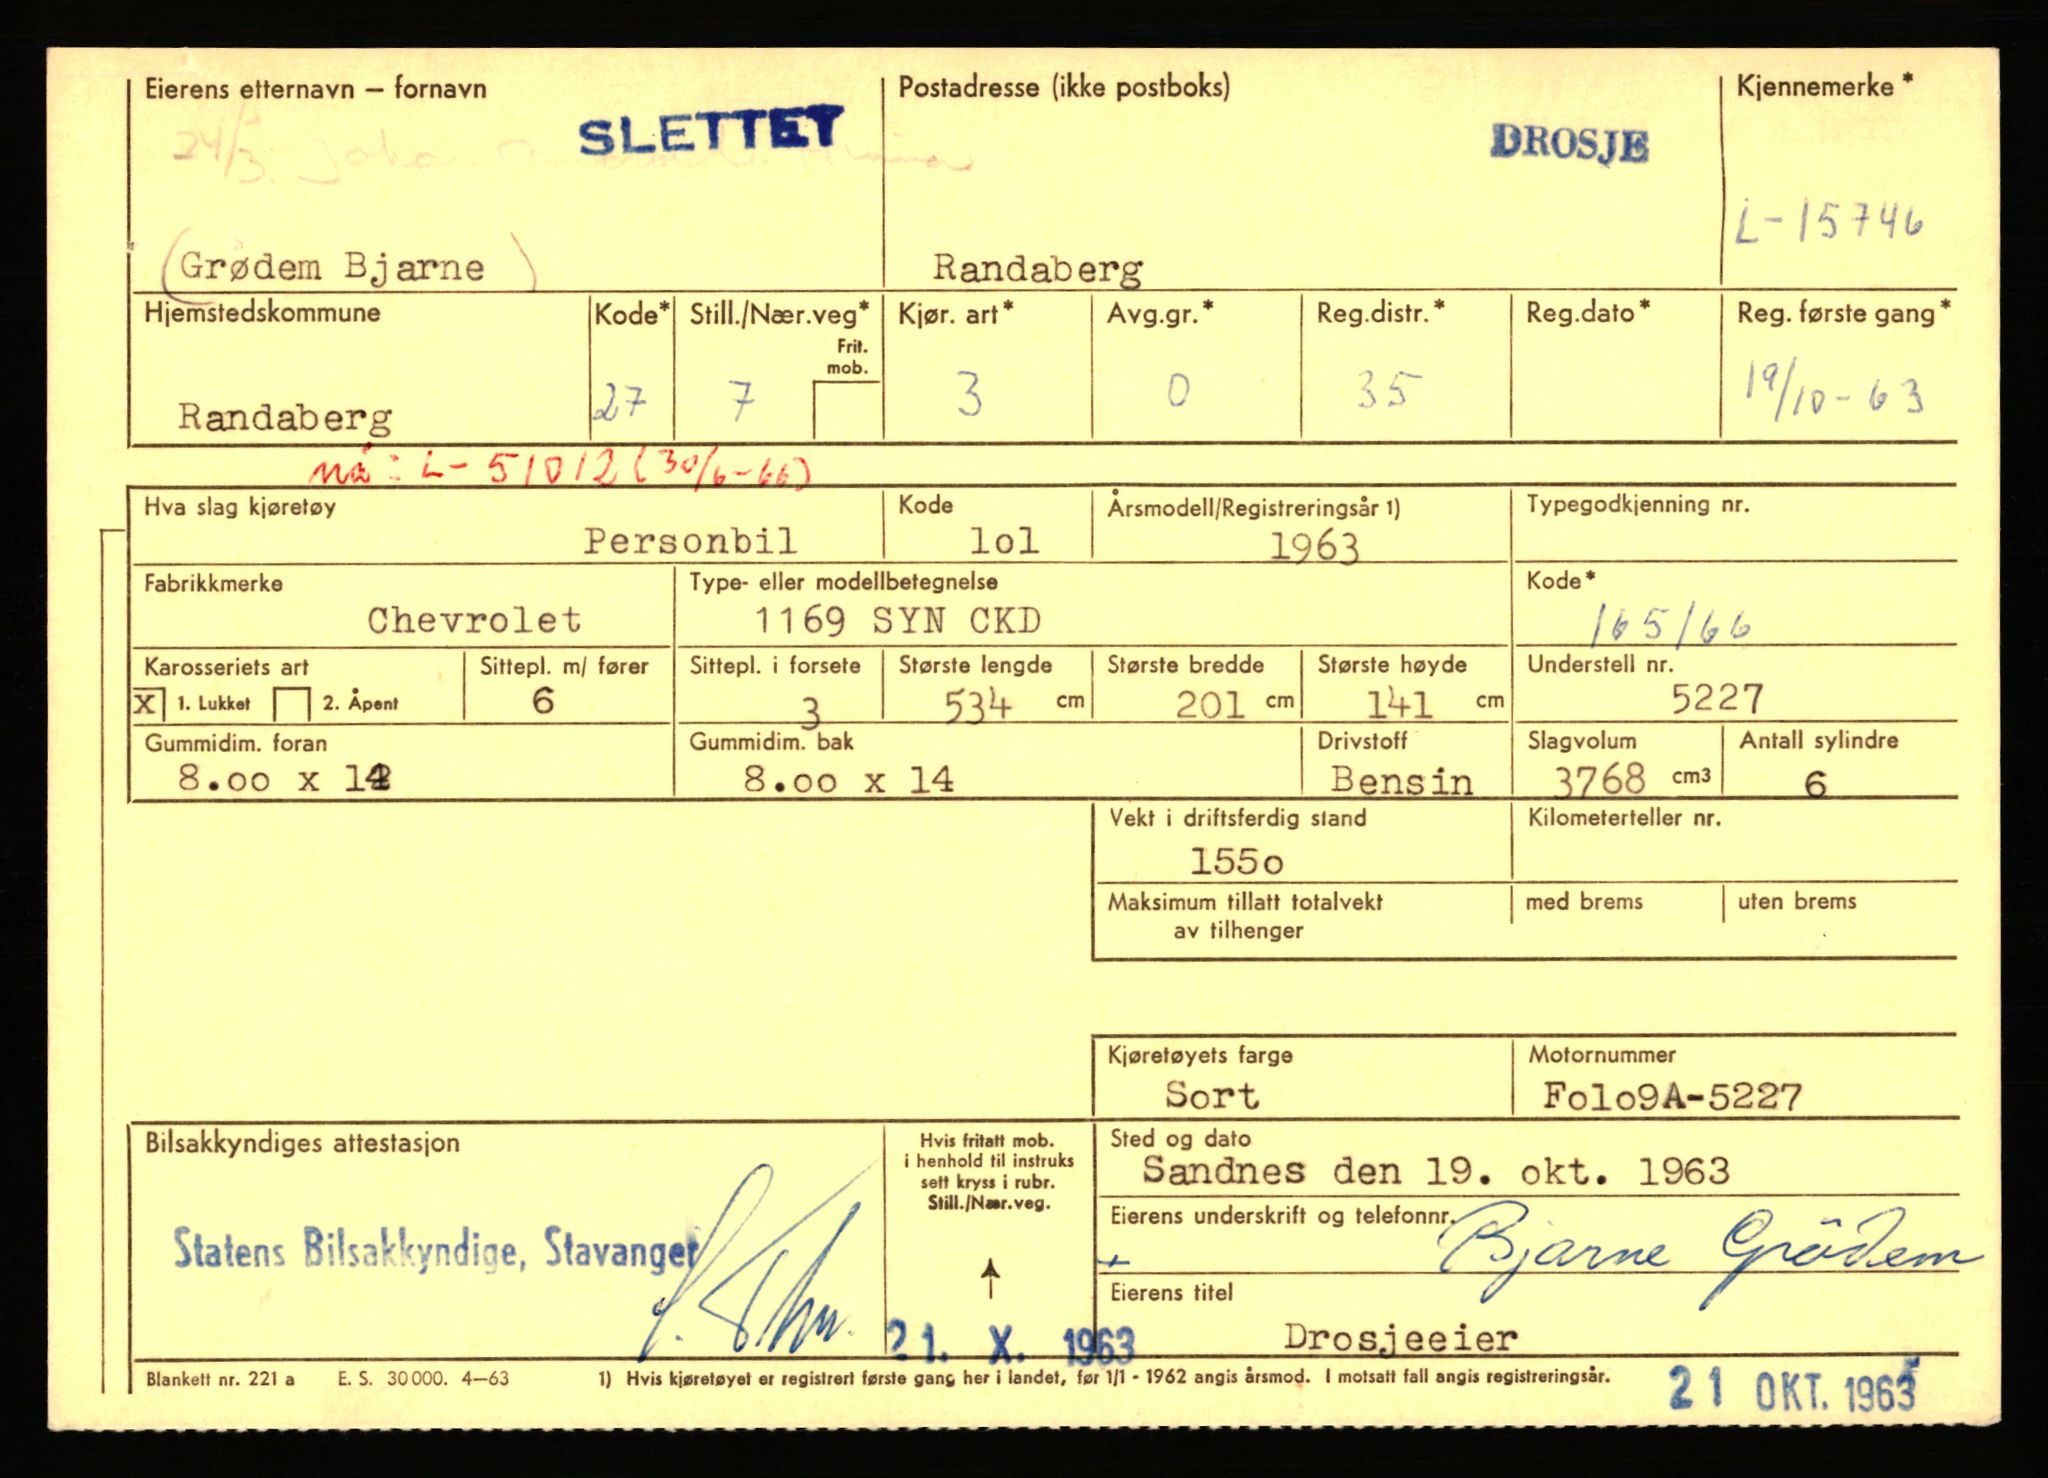 Eierens etternavn – fornavn
SLETTET
24/3 Johan
(Grødem Bjarne)
Postadresse (ikke postboks)
DROSJE
Randaberg
Kjennemerke*
L-15746
Hjemstedskommune
Randaberg
Kode*
27
Still./Nær.veg*
Frit.
mob.
7
Kjør. art*
3
Avg.gr.*
0
Reg.distr.*
35
Reg.dato*
Reg. første gang*
19/10-63
nå: L-51012 (30/6-66)
Hva slag kjøretøy
Personbil
Kode
lol
Årsmodell/Registreringsår 1)
1963
Typegodkjenning nr.
Fabrikkmerke
Chevrolet
Type- eller modellbetegnelse
1169 SYN CKD
Kode*
165/66
Karosseriets art
X 1. Lukket 2. Åpent
Sittepl. m/ fører
6
Sittepl. i forsete
3
Største lengde
534 cm
Største bredde
201 cm
Største høyde
141 cm
Understell nr.
5227
Gummidim. foran
8.oo x 14
Gummidim. bak
8.oo x 14
Drivstoff
Bensin
Slagvolum
3768 cm3
Antall sylindre
6
Vekt i driftsferdig stand
155o
Kilometerteller nr.
Maksimum tillatt totalvekt
av tilhenger
med brems
uten brems
Kjøretøyets farge
Sort
Motornummer
Folo9A-5227
Bilsakkyndiges attestasjon
Statens Bilsakkyndige, Stavanger
Hvis fritatt mob.
i henhold til instruks
sett kryss i rubr.
Still./Nær.veg.
21. X. 1963
Sted og dato
Sandnes den 19. okt. 1963
Eierens underskrift og telefonnr.
Bjarne Grödem
Eierens titel
Drosjeeier
Blankett nr. 221 a E. S. 30 000. 4–63
1) Hvis kjøretøyet er registrert første gang her i landet, før 1/1 - 1962 angis årsmod. I motsatt fall angis registreringsår.
21 OKT. 1963